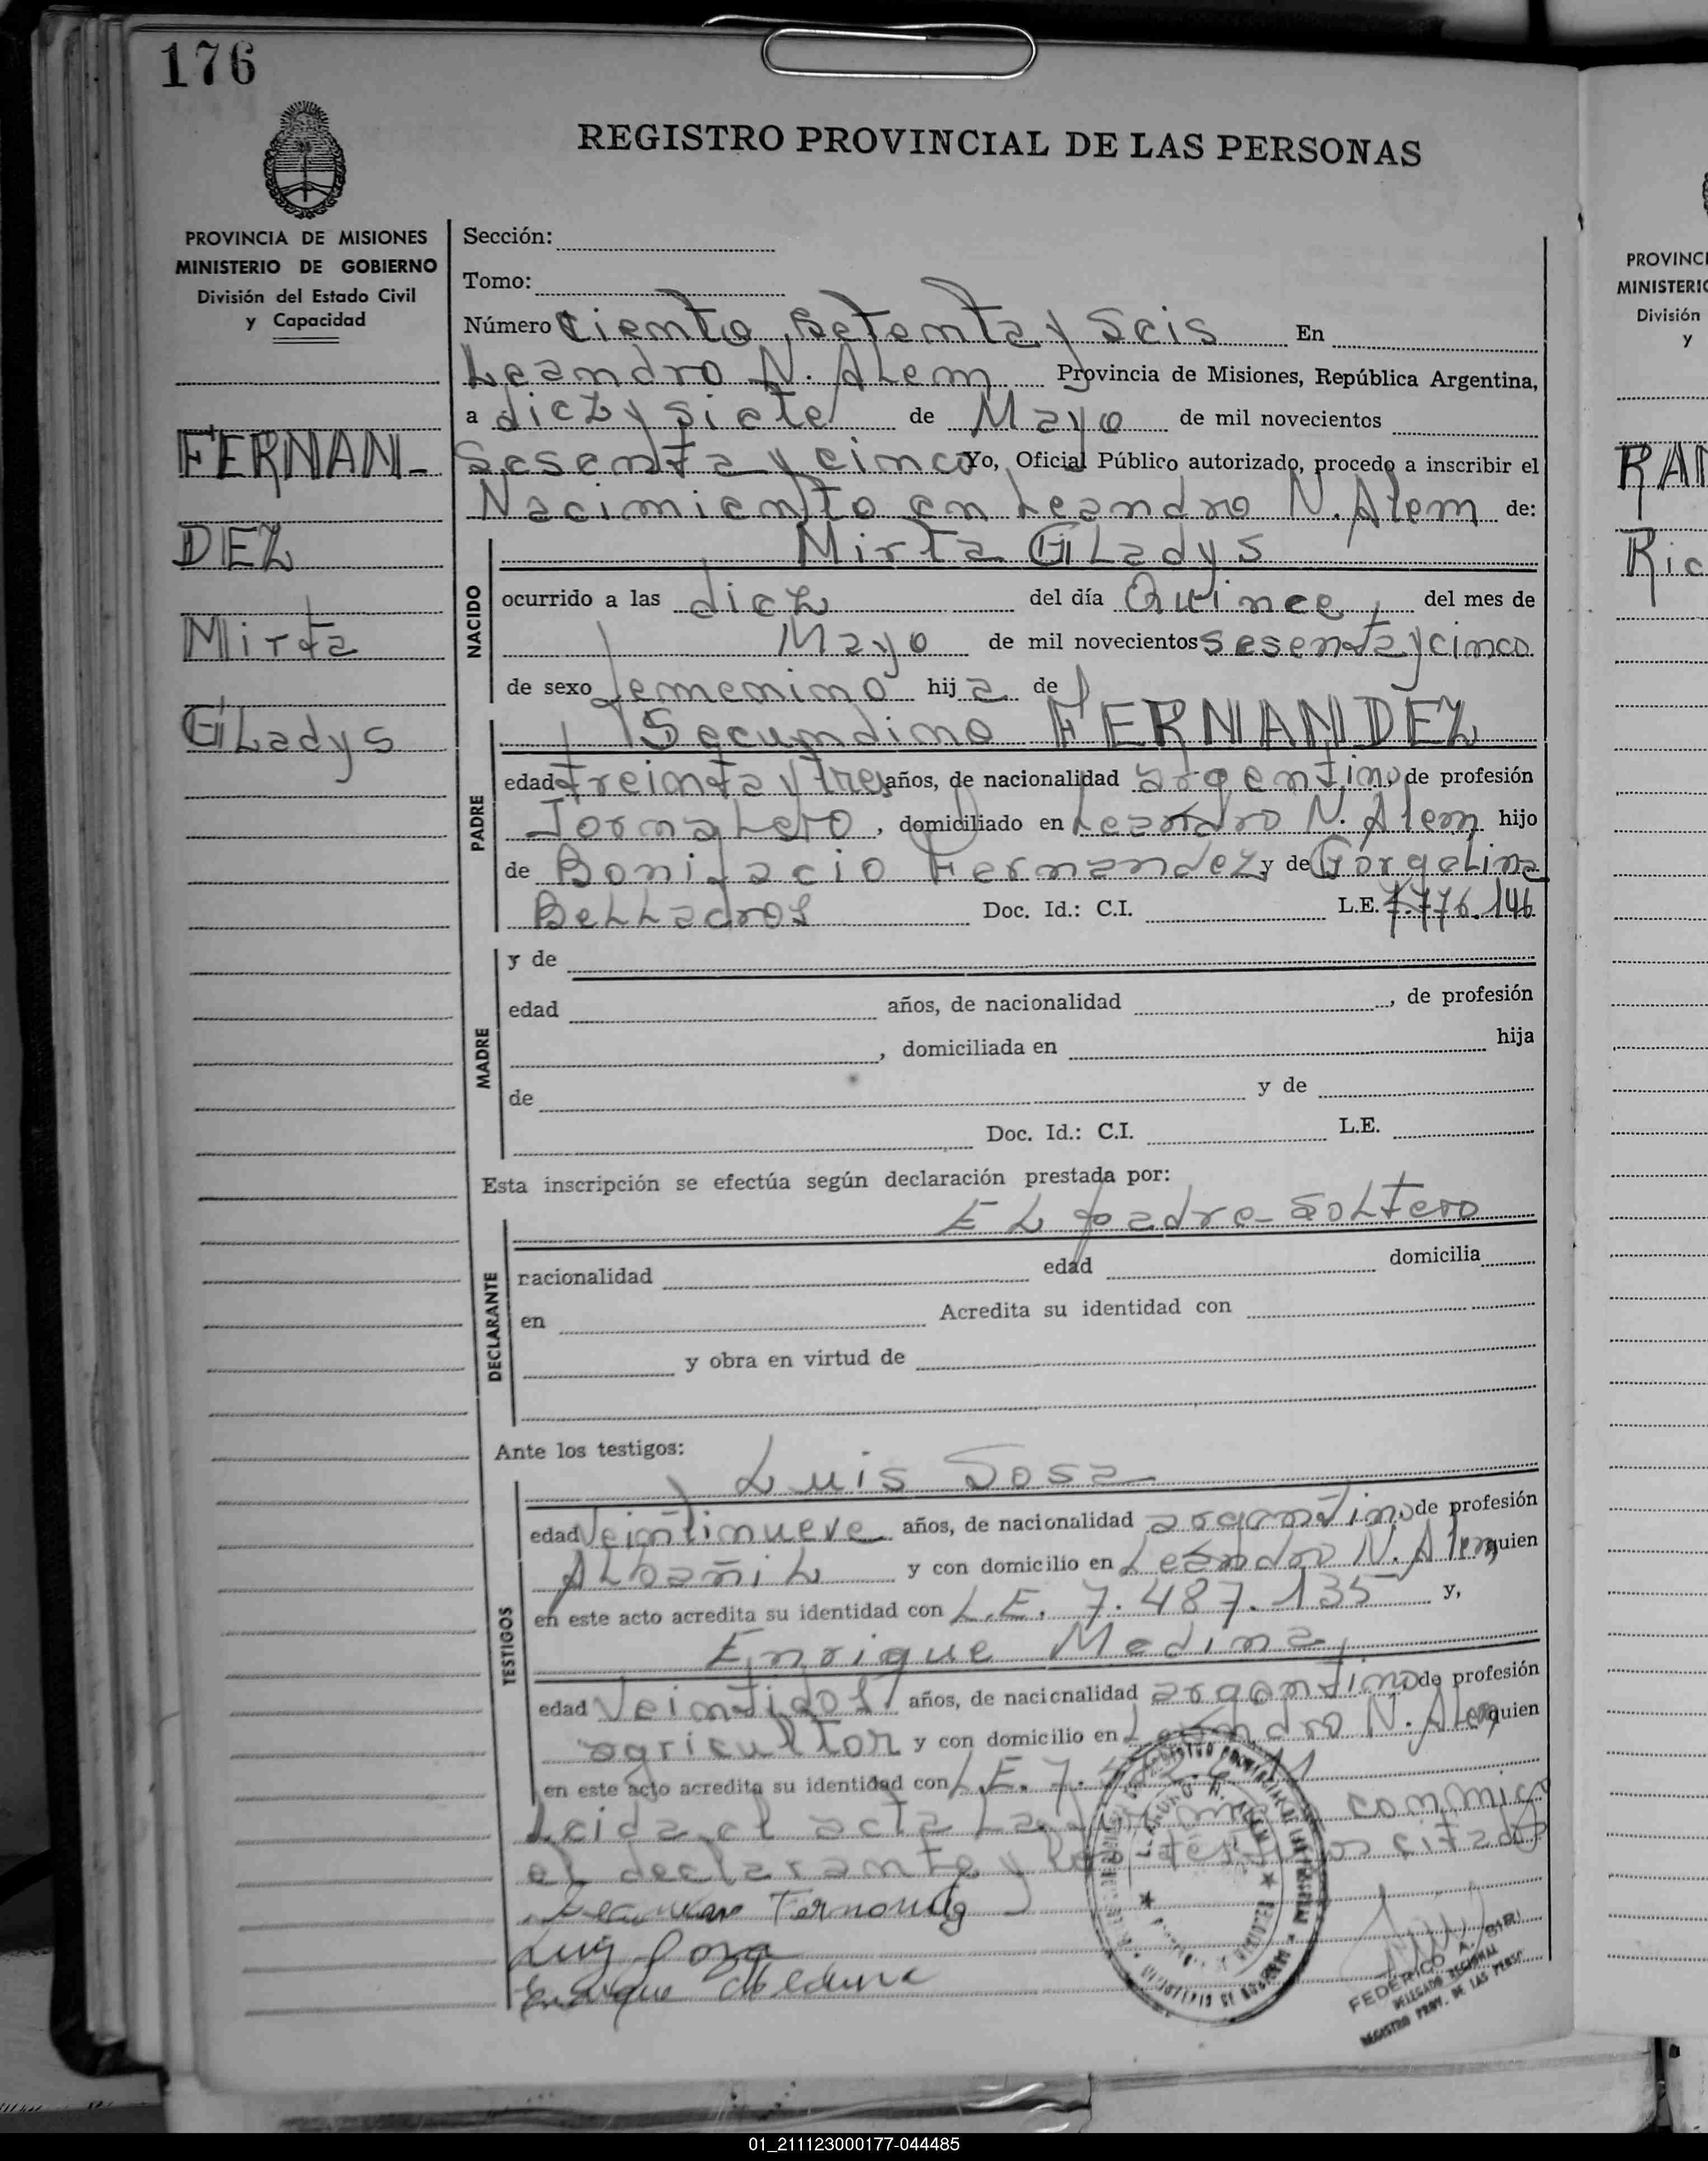 176
REGISTRO PROVINCIAL DE LAS PERSONAS
PROVINCIA DE MISIONES
MINISTERIO DE GOBIERNO
División del Estado Civil
y Capacidad
FERNAN-
DEZ
Mirta
Gladys
Sección:
Tomo:
Número Ciento Setenta y Seis En
Leandro N. Alem Provincia de Misiones, República Argentina,
a diez y siete de Mayo de mil novecientos
Sesenta y cinco Yo, Oficial Público autorizado, procedo a inscribir el
Nacimiento en Leandro N. Alem de:
NACIDO
Mirta Gladys
ocurrido a las diez del día Quince, del mes de
Mayo de mil novecientos sesenta y cinco
de sexo femenino hija de
PADRE
Secundino FERNANDEZ
edad treinta y tres años, de nacionalidad argentino de profesión
Jornalero, domiciliado en Leandro N. Alem hijo
de Bonifacio Fernandez y de Gorgelina
Belladros Doc. Id.: C.I. L.E. 7.776.146
MADRE
y de
edad años, de nacionalidad , de profesión
, domiciliada en hija
de y de
Doc. Id.: C.I. L.E.
Esta inscripción se efectúa según declaración prestada por:
DECLARANTE
El padre - Soltero
nacionalidad edad domicilia
en Acredita su identidad con
y obra en virtud de
Ante los testigos:
TESTIGOS
Luis Sosa
edad Veintinueve años, de nacionalidad argentino de profesión
Albañil y con domicilio en Leandro N. Alem quien
en este acto acredita su identidad con L.E. 7.487.135 y,
Enrique Medina,
edad Veintidos años, de nacionalidad argentino de profesión
agricultor y con domicilio en Leandro N. Alem quien
en este acto acredita su identidad con L.E. 7.
Leida el acta La conmigo
el declarante y los testigos citados
Fernandez
Luis Sosa
Enrique Medina
FEDERICO A.
DELEGADO REGIONAL
REGISTRO PROV. DE LAS PERS.
PROVINCI
MINISTERIO
División
y
RAM
Ric
01_211123000177-044485